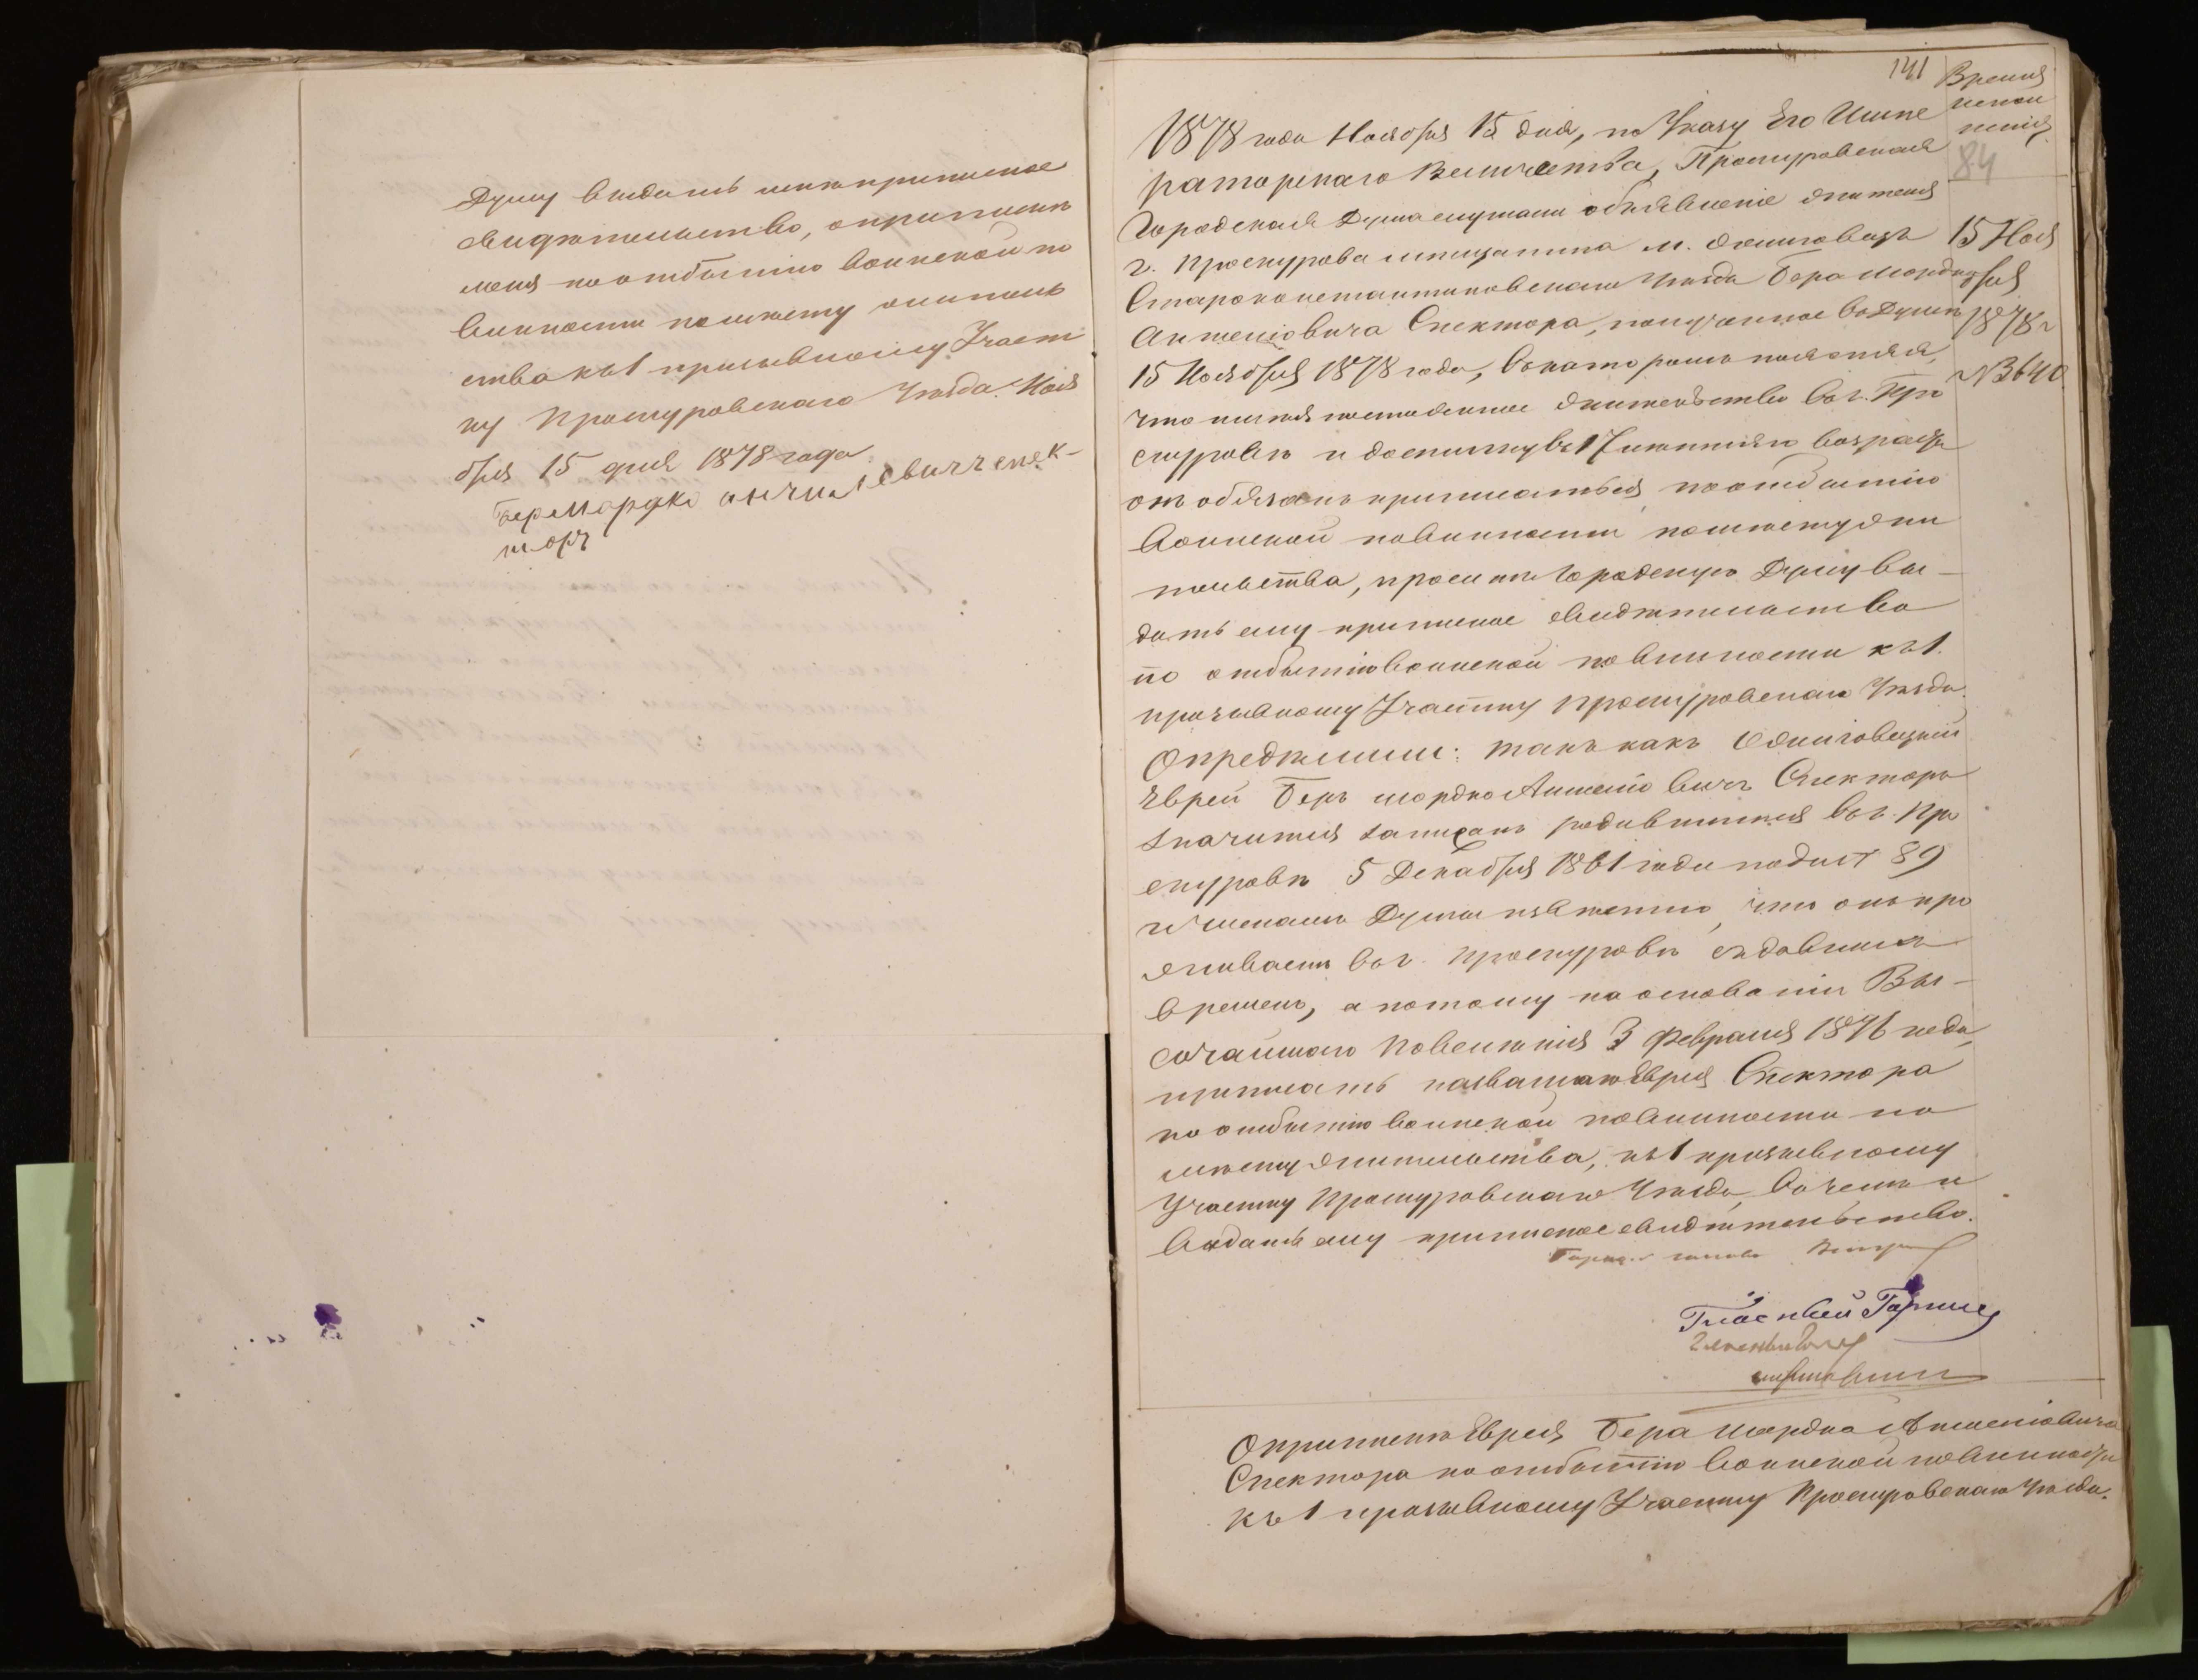 Думу выдать мнѣ приписное
свидѣтельство, о припискѣ
меня по отбытію воинской по
винности по мѣсту житель
ства къ 1 призывному Участ
ку Проскуровскаго Уѣзда. Ноя
бря 15 дня 1878 года
Бер Мордко Аншелевичъ Спек-
торъ
141
Время
исполн
ненія
84
15 Ноя
бря
1878 г
№ 3640
1878 года Ноября 15 дня, по Указу Его Импе
раторскаго Величества, Проскуровская
Городская Дума слушали объявленіе жителя
г. Проскурова мѣщанина м.
Староконстантиновскаго Уѣзда Бера Мордко
Аншелiовича Спектора, полученное въ Думѣ
15 Ноября 1878 года, въ которомъ поясняя,
что имѣя постоянное жительство въ г. Про
скуровѣ и достигнувъ 17 лѣтняго возраста
онъ обязанъ приписаться по отбытію
воинской повинности по мѣсту жи
тельства, проситъ Городскую Думу вы-
дать ему приписное свидѣтельство
по отбытію воинской повинности къ 1
призывному Участку Проскуровскаго Уѣзда.
Опредѣлили: такъ какъ
Еврей Беръ Мордко Аншелiовичъ Спекторъ
значится записанъ родившимся въ г. Про
скуровѣ 5 Декабря 1861 года подъ № 89
и членамъ Думы извѣстно, что онъ про
живаетъ въ г. Проскуровѣ съ давнихъ
временъ, а потому на основаніи Вы-
сочайшаго Повелѣнія 3 Февраля 1876 года,
приписать названнаго Еврея Спектора
по отбытію воинской повинности по
мѣсту жительства, къ 1 призывному
Участку Проскуровскаго Уѣзда, въ чемъ и
выдать ему приписное свидѣтельство.
Город. голова
Гласный
О припискѣ Еврея Бера Мордко Аншелiовича
Спектора по отбытію воинской повинности
къ 1 призывному Участку Проскуровскаго Уѣзда.